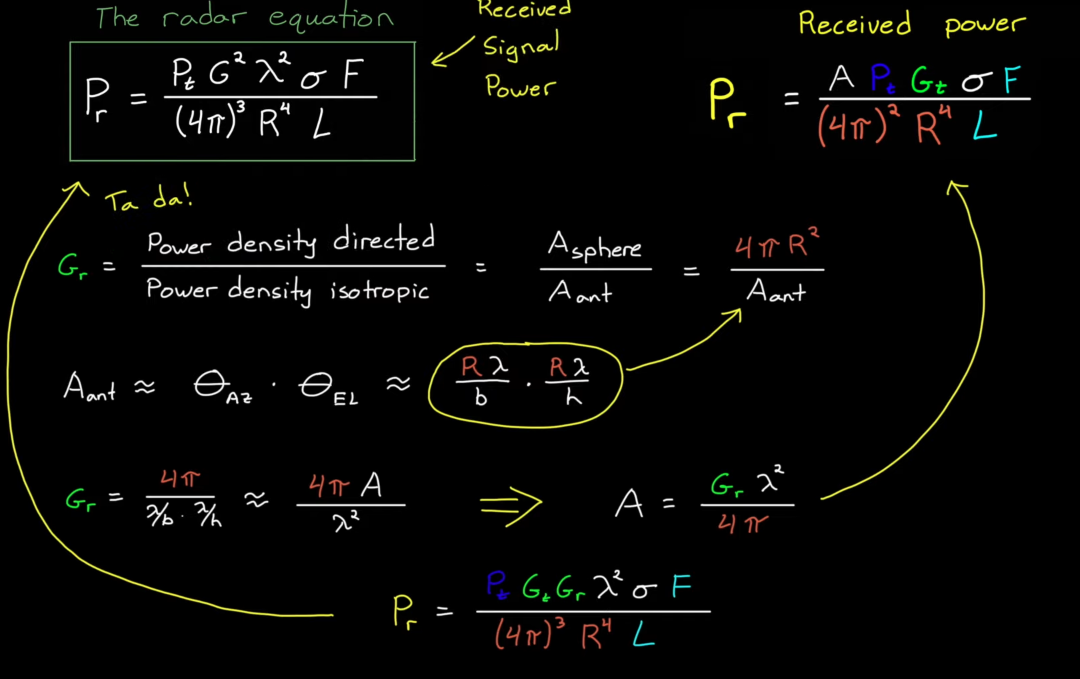 The radar equation
Received Signal Power
Received power
P_r = P_t G² λ² σ F / (4π)³ R⁴ L
P_r = A P_t G_t σ F / (4π)² R⁴ L
Ta da!
G_r = Power density directed / Power density isotropic = A_sphere / A_ant = 4πR² / A_ant
A_ant ≈ θ_AZ · θ_EL ≈ Rλ/b · Rλ/h
G_r = 4π / (λ/b · λ/h) ≈ 4πA / λ² ⇒ A = G_r λ² / 4π
P_r = P_t G_t G_r λ² σ F / (4π)³ R⁴ L